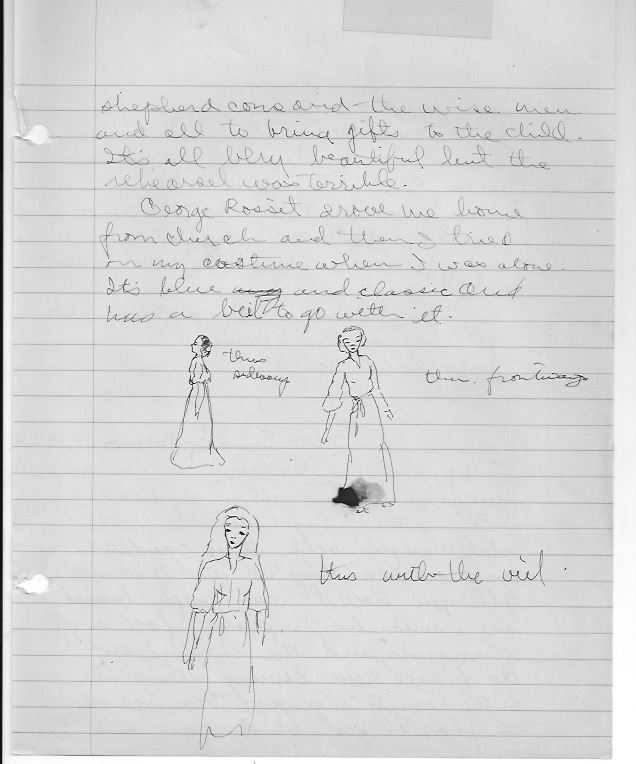 shepherd come and the wise men
and all to bring gifts to the child.
It's all very beautiful but the
rehearsal was terrible.
George Rossit drove me home
from church and then I tried
on my costume when I was alone.
It's blue and classic and
has a belt to go with it.
thus
sideways
thus frontways
thus with the viel.